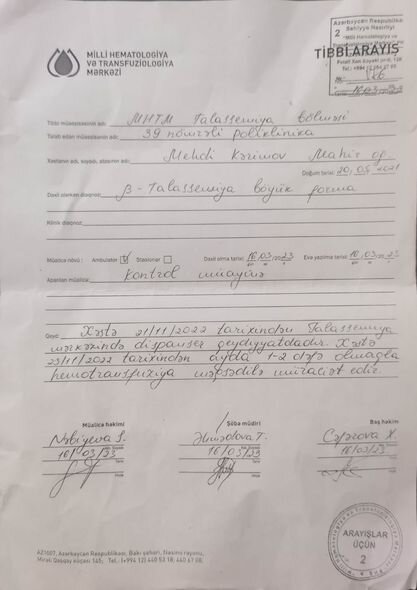 MİLLİ HEMATOLOGİYA
VƏ TRANSFUZİOLOGİYA
MƏRKƏZİ
Azərbaycan Respublika
Səhiyyə Nazirliyi
2
TİBBİ ARAYIŞ
16.03.23
Tibbi müəssisənin adı: MHTM Talassemiya bölməsi
Tələb edən müəssisənin adı: 39 nömrəli poliklinika
Xəstənin adı, soyadı, atasının adı: Mehdi Kərimov Mahir oğ.
Doğum tarixi: 20.05.2021
Daxil olarkən diaqnoz: β-Talassemiya böyük forma
Klinik diaqnoz:
Müalicə növü: Ambulator Stasionar Daxil olma tarixi: 16/03/2023 Evə yazılma tarixi: 16/03/2023
Aparılan müalicə: Kontrol müayinə
Qeyd: Xəstə 21/11/2022 tarixindən Talassemiya
mərkəzində dispanser qeydiyyatdadır. Xəstə
23/11/2022 tarixindən ayda 1-2 dəfə olmaqla
hemotransfuziya məqsədilə müraciət edir.
Müalicə həkimi Şöbə müdiri Baş həkim
Nəbiyeva S. Əhmədova T. Cəfərova X.
16/03/23 16/03/23 16/03/23
ARAYIŞLAR
ÜÇÜN
2
AZ1007, Azərbaycan Respublikası, Bakı şəhəri, Nəsimi rayonu,
Mirəli Qaşqay küçəsi 145; Tel.: (+994 12) 440 53 18; 440 67 08.